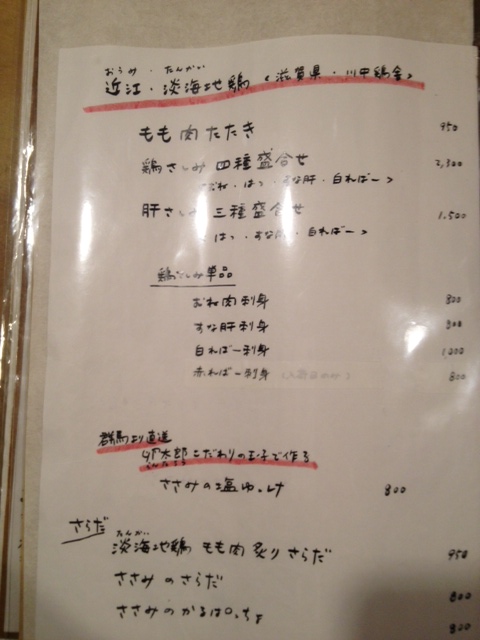 おうみ・たんかい
近江・淡海地鶏 <滋賀県・川中鶏舎>
もも肉たたき 950
鶏さしみ 四種盛合せ 2,300
<むね・はつ・すな肝・白ればー>
肝さしみ 三種盛合せ 1,500
<はつ・すな肝・白ればー>
鶏さしみ単品
むね肉刺身 800
すな肝刺身 800
白ればー刺身 1000
赤ればー刺身 800
群馬より直送
卵太郎こだわりの玉子で作る
ささみの塩ゆっけ 800
さらだ
たんかい
淡海地鶏 もも肉 炙り さらだ 950
ささみ の さらだ 800
ささみ の かるぱっちょ 800